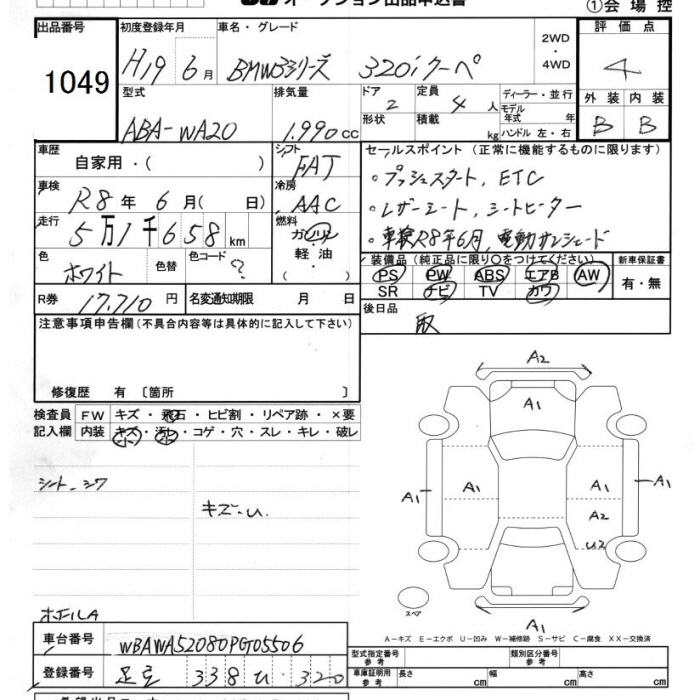 オークション出品申込書
①会場控
出品番号
1049
初度登録年月
H19 6月
車名・グレード
BMW3シリーズ 320iクーペ
2WD
・
4WD
評価点
4
外装 内装
B B
型式
ABA-WA20
排気量
1.990cc
ドア
2
定員
4人
形状
積載
kg
ディーラー・並行
モデル年式 年
ハンドル 左・右
車歴
自家用・( )
シフト
FAT
車検
R8年 6月( 日)
冷房
AAC
走行
5万1千658km
燃料
ガソリン
軽油
・
色
ホワイト
色替
色コード
?
R券
17.710円
名変通知期限 月 日
セールスポイント(正常に機能するものに限ります)
・プッシュスタート, ETC
・レザーシート, シートヒーター
・車検R8年6月, 電動サンシェード
装備品(純正品に限り○をつけてください)
PS PW ABS エアB AW
SR ナビ TV カワ
新車保証書
有・無
後日品
取
注意事項申告欄(不具合内容等は具体的に記入して下さい)
修復歴 有〔箇所 〕
検査員記入欄
FW キズ・飛石・ヒビ割・リペア跡・×要
内装 キズ・汚レ・コゲ・穴・スレ・キレ・破レ
シート シワ
キズ・U.
ホイールA
A2
A1
A1
A1
A1
A1
A2
U2
A1
スペア
A-キズ E-エクボ U-凹み W-補修跡 S-サビ C-腐食 XX-交換済
車台番号
WBAWA52080PG05506
登録番号
足立 338 U 320
型式指定番号
参考
類別区分番号
参考
車庫証明用
参考
長さ cm
幅 cm
高さ cm